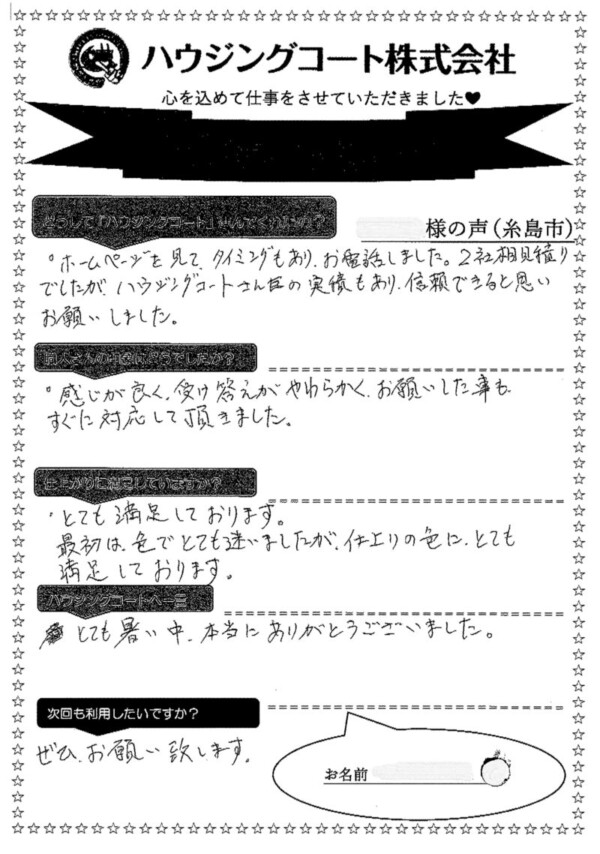 ハウジングコート株式会社
心を込めて仕事をさせていただきました♥
どうして「ハウジングコート」
様の声(糸島市)
°ホームページを見て、タイミングもあり、お電話しました。2社相見積り
でしたが、ハウジングコートさんの実績もあり、信頼できると思い
お願いしました。
職人さんの対応はどうでしたか?
°感じが良く、受け答えがやわらかく、お願いした事も
すぐに対応して頂きました。
仕上がりに満足していますか?
・とても満足しております。
最初は、色でとても迷いましたが、仕上りの色に、とても
満足しております。
ハウジングコートへ一言
とても暑い中、本当にありがとうございました。
次回も利用したいですか?
ぜひ、お願い致します。
お名前